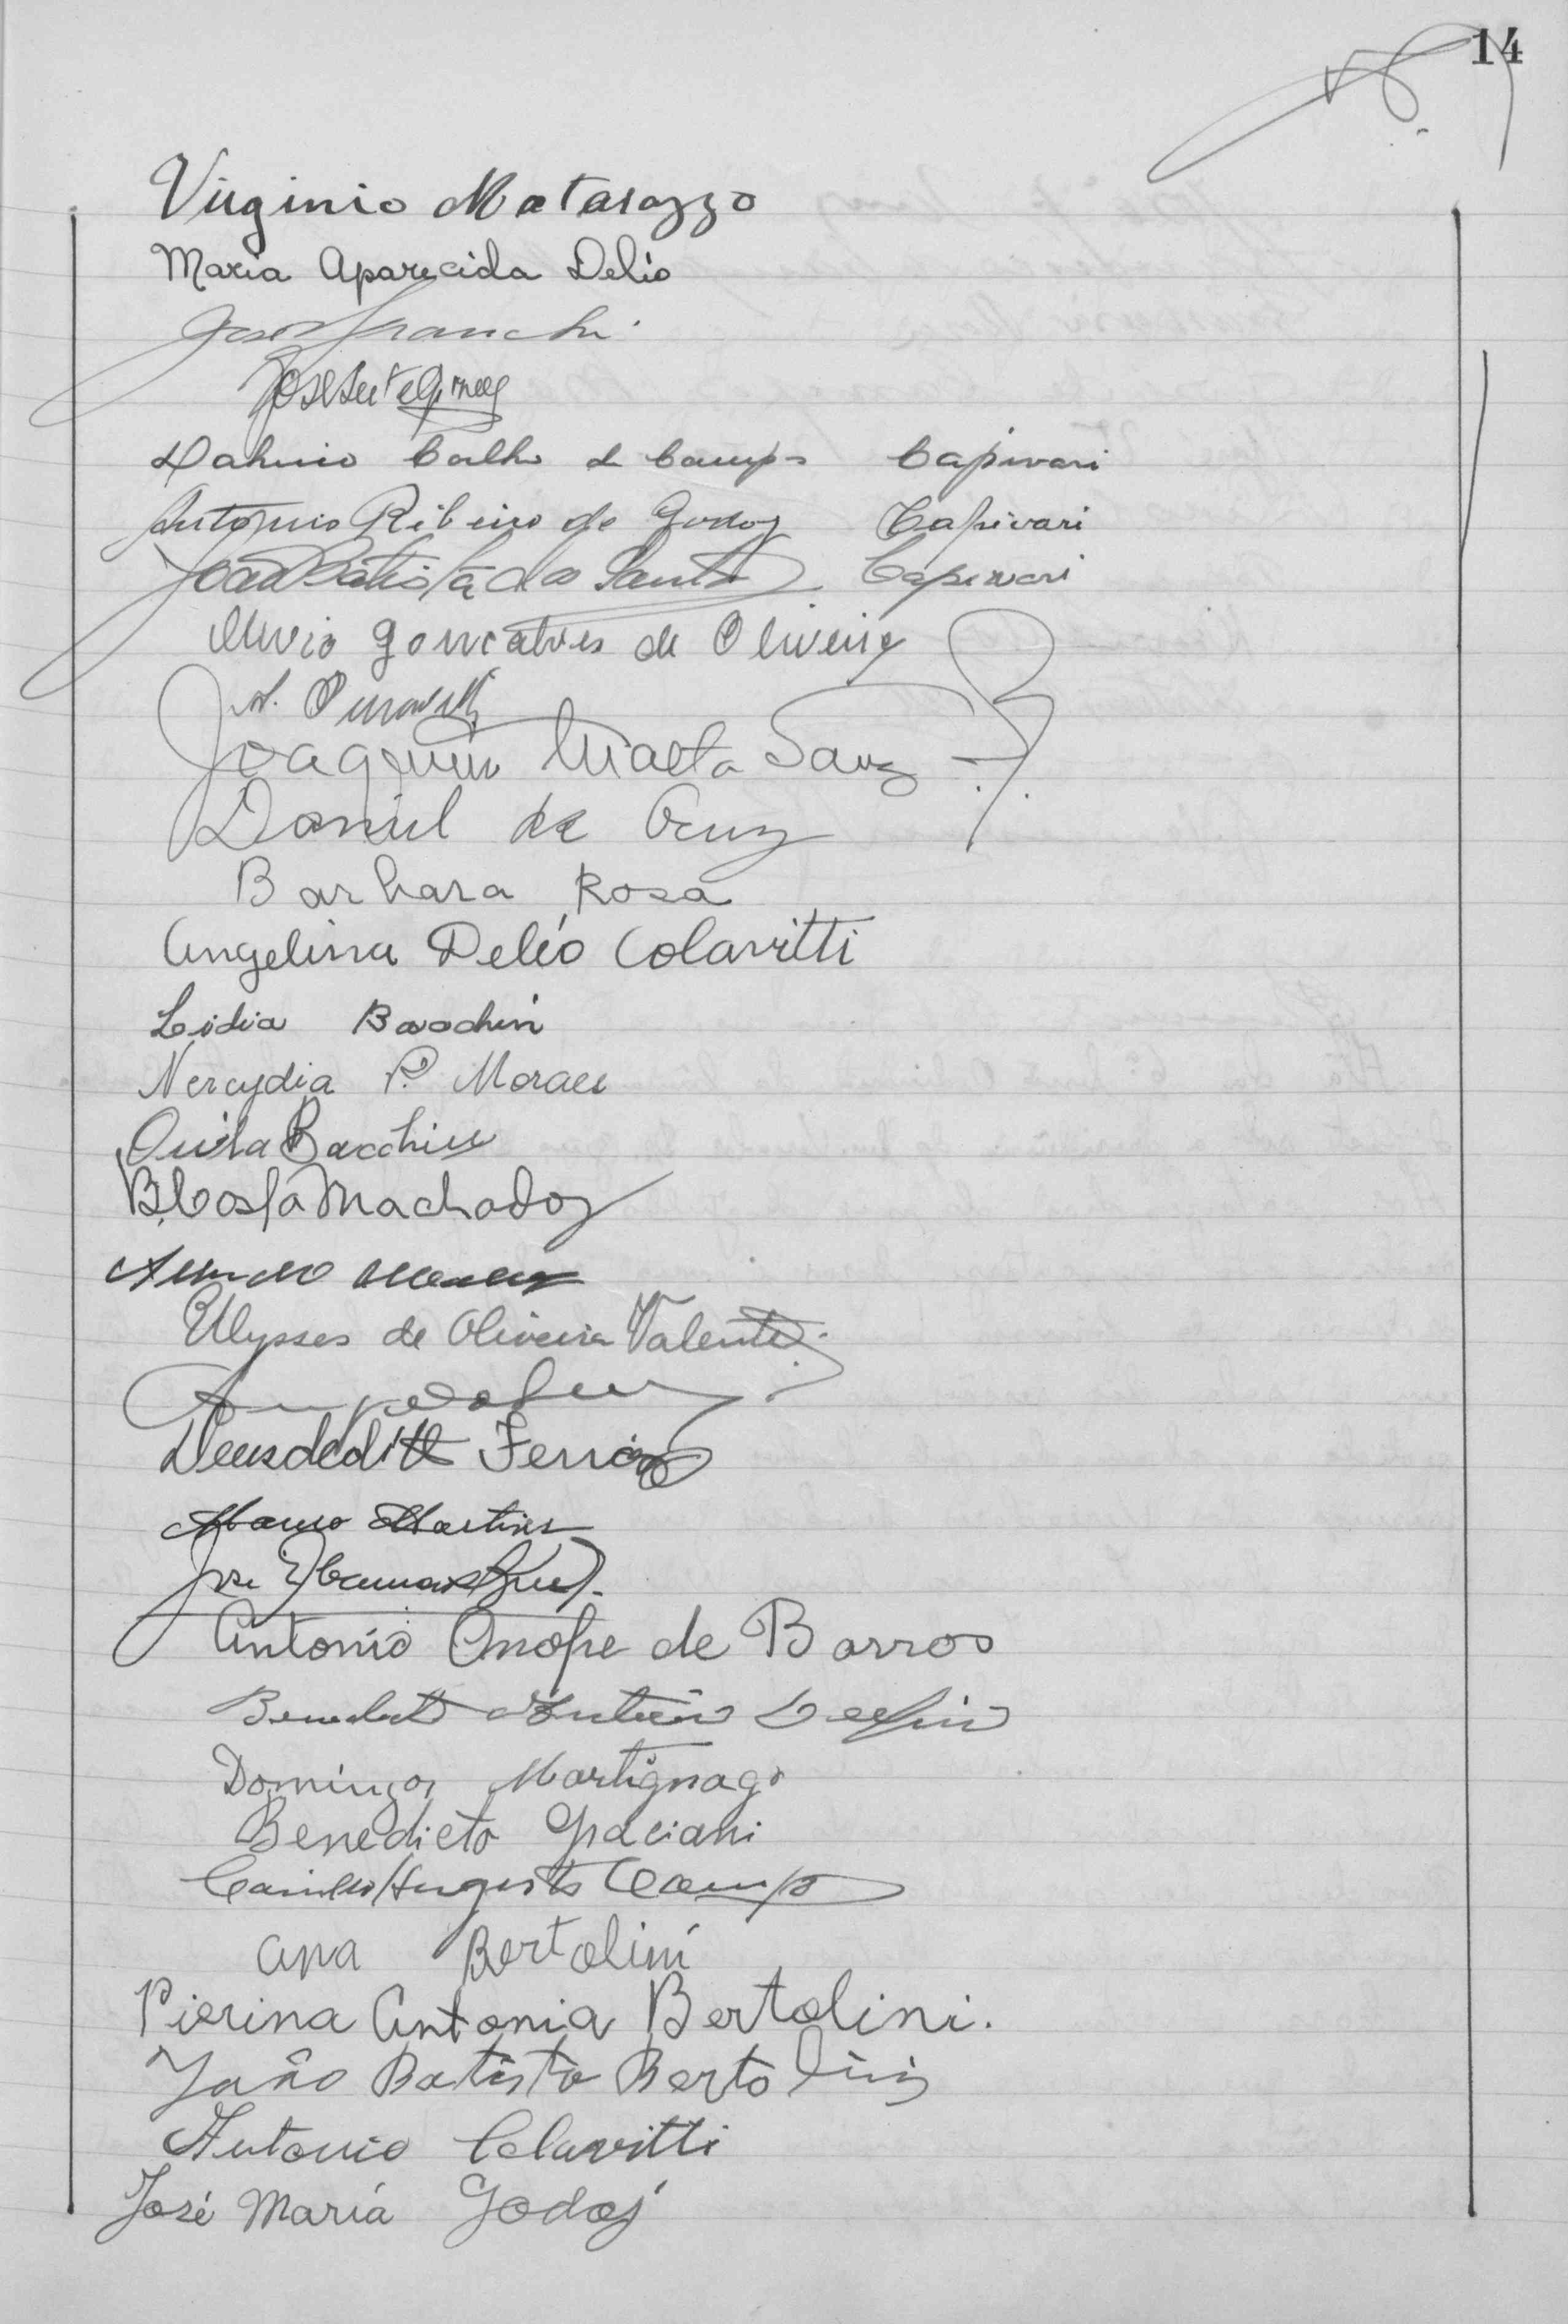 14
Virginio Matarazzo
Maria Aparecida Delio
José Franchi
José
Coelho de Campos Capivari
Antonio Ribeiro de Godoy Capivari
João Batista dos Santos Capivari
Gonçalves de Oliveira
Joaquim Malta
Daniel da Cruz
Barbara Rosa
Angelina Deléo Colavitti
Lidia Bacchin
Nercydia P. Moraes
Bacchin
B. Costa Machado
Ulysses de Oliveira Valente
Deusdedith Ferraz
Mauro Martins
José
Antonio Onofre de Barros
Benedito
Domingos Martignago
Benedicto Graciani
Camillo Augusto Campos
Ana Bertolini
Pierina Antonia Bertolini.
João Batista Bertolini
Antonio Colavitti
José Maria Godoj